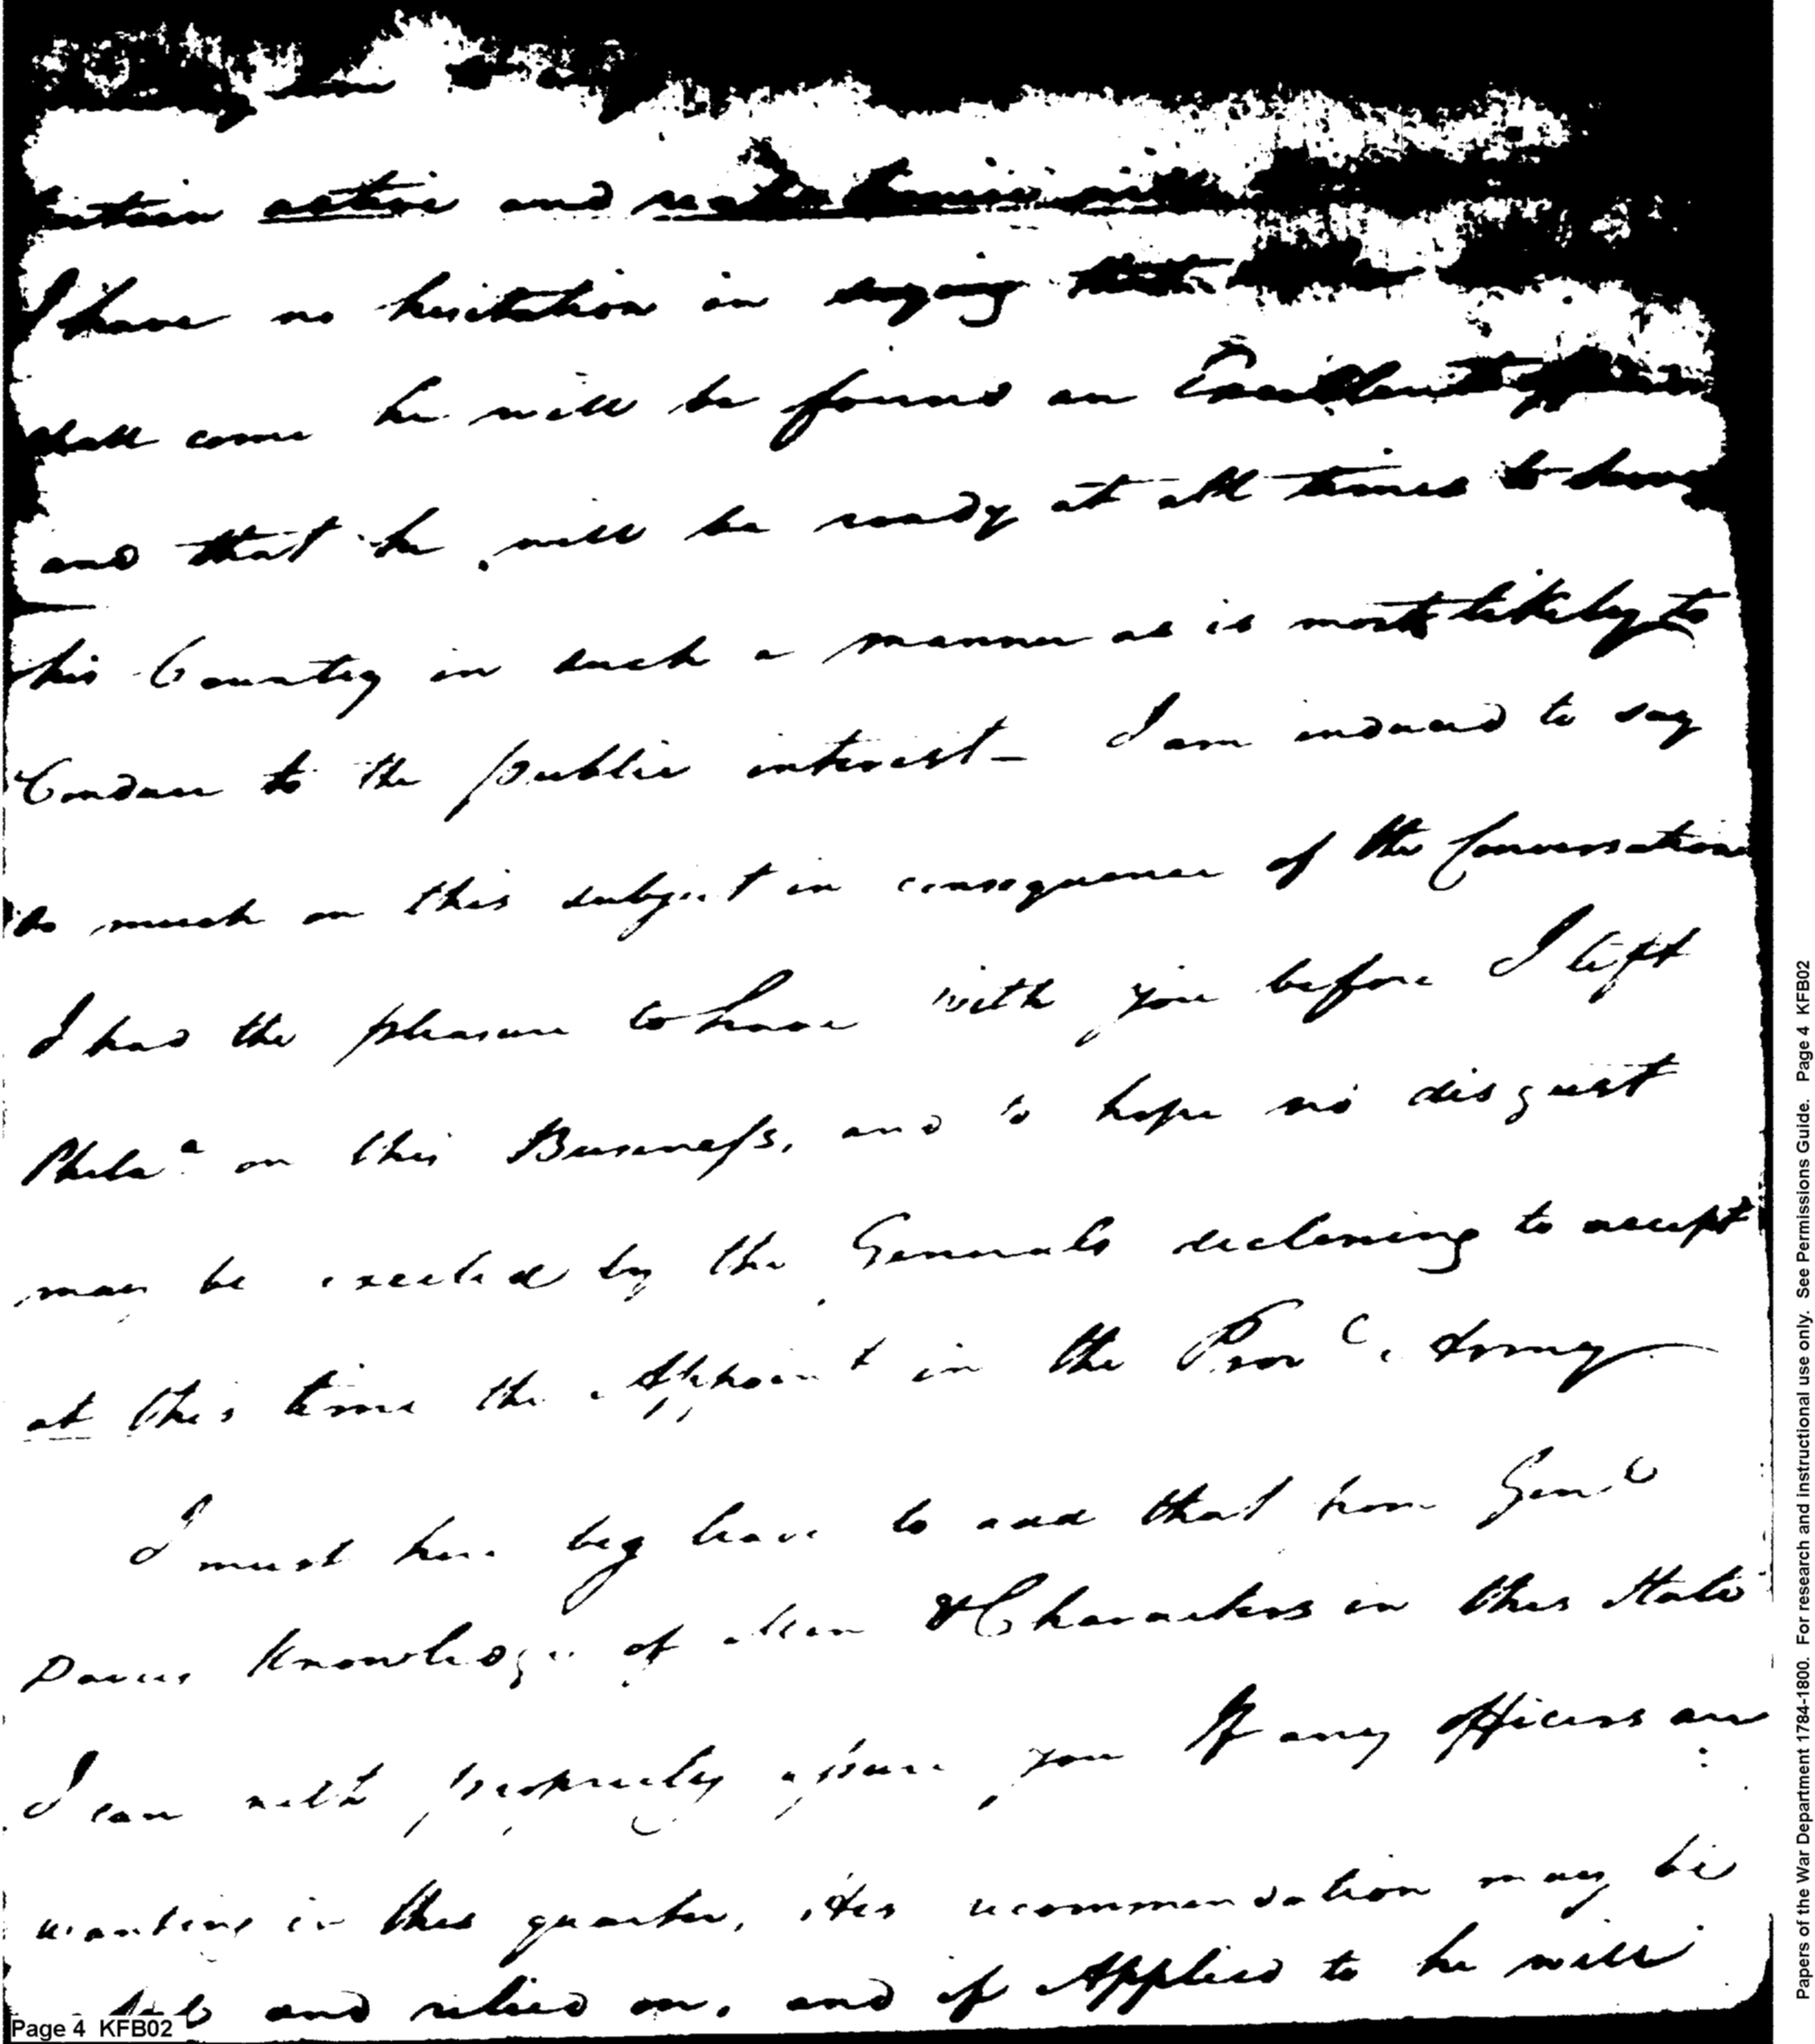 certain active and real
I have no hesitation in saying that
shall come he will be found an Excellent
and that he will be ready at all times to
his Country in such a manner as is most likely to
Conduce to the public interest – I am induced to say
so much on this subject in consequence of the Conversation
I had the pleasure to have with you before I left
Phila.ª on this Business, and to hope no disgust
may be excited by the Generals declining to accept
at this time the Appoin.t in the Prov.c Army
I must here beg leave to add that from Gen.l
Davies Knowledge of Men & Characters in this State
I can with propriety assure you If any officers are
wanting in this quarter, His recommendation may be
and relied on, and if Applied to he will
Page 4 KFB02
Papers of the War Department 1784-1800. For research and instructional use only. See Permissions Guide. Page 4 KFB02